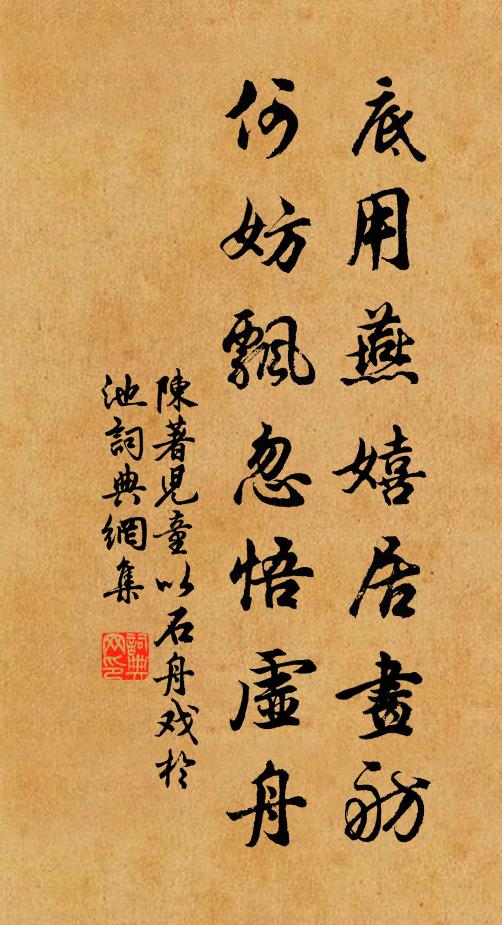 底用燕嬉居畫舫
何妨飄忽悟虛舟
陳著兒童以石舟戏於
池詞典網集
詞典
网印